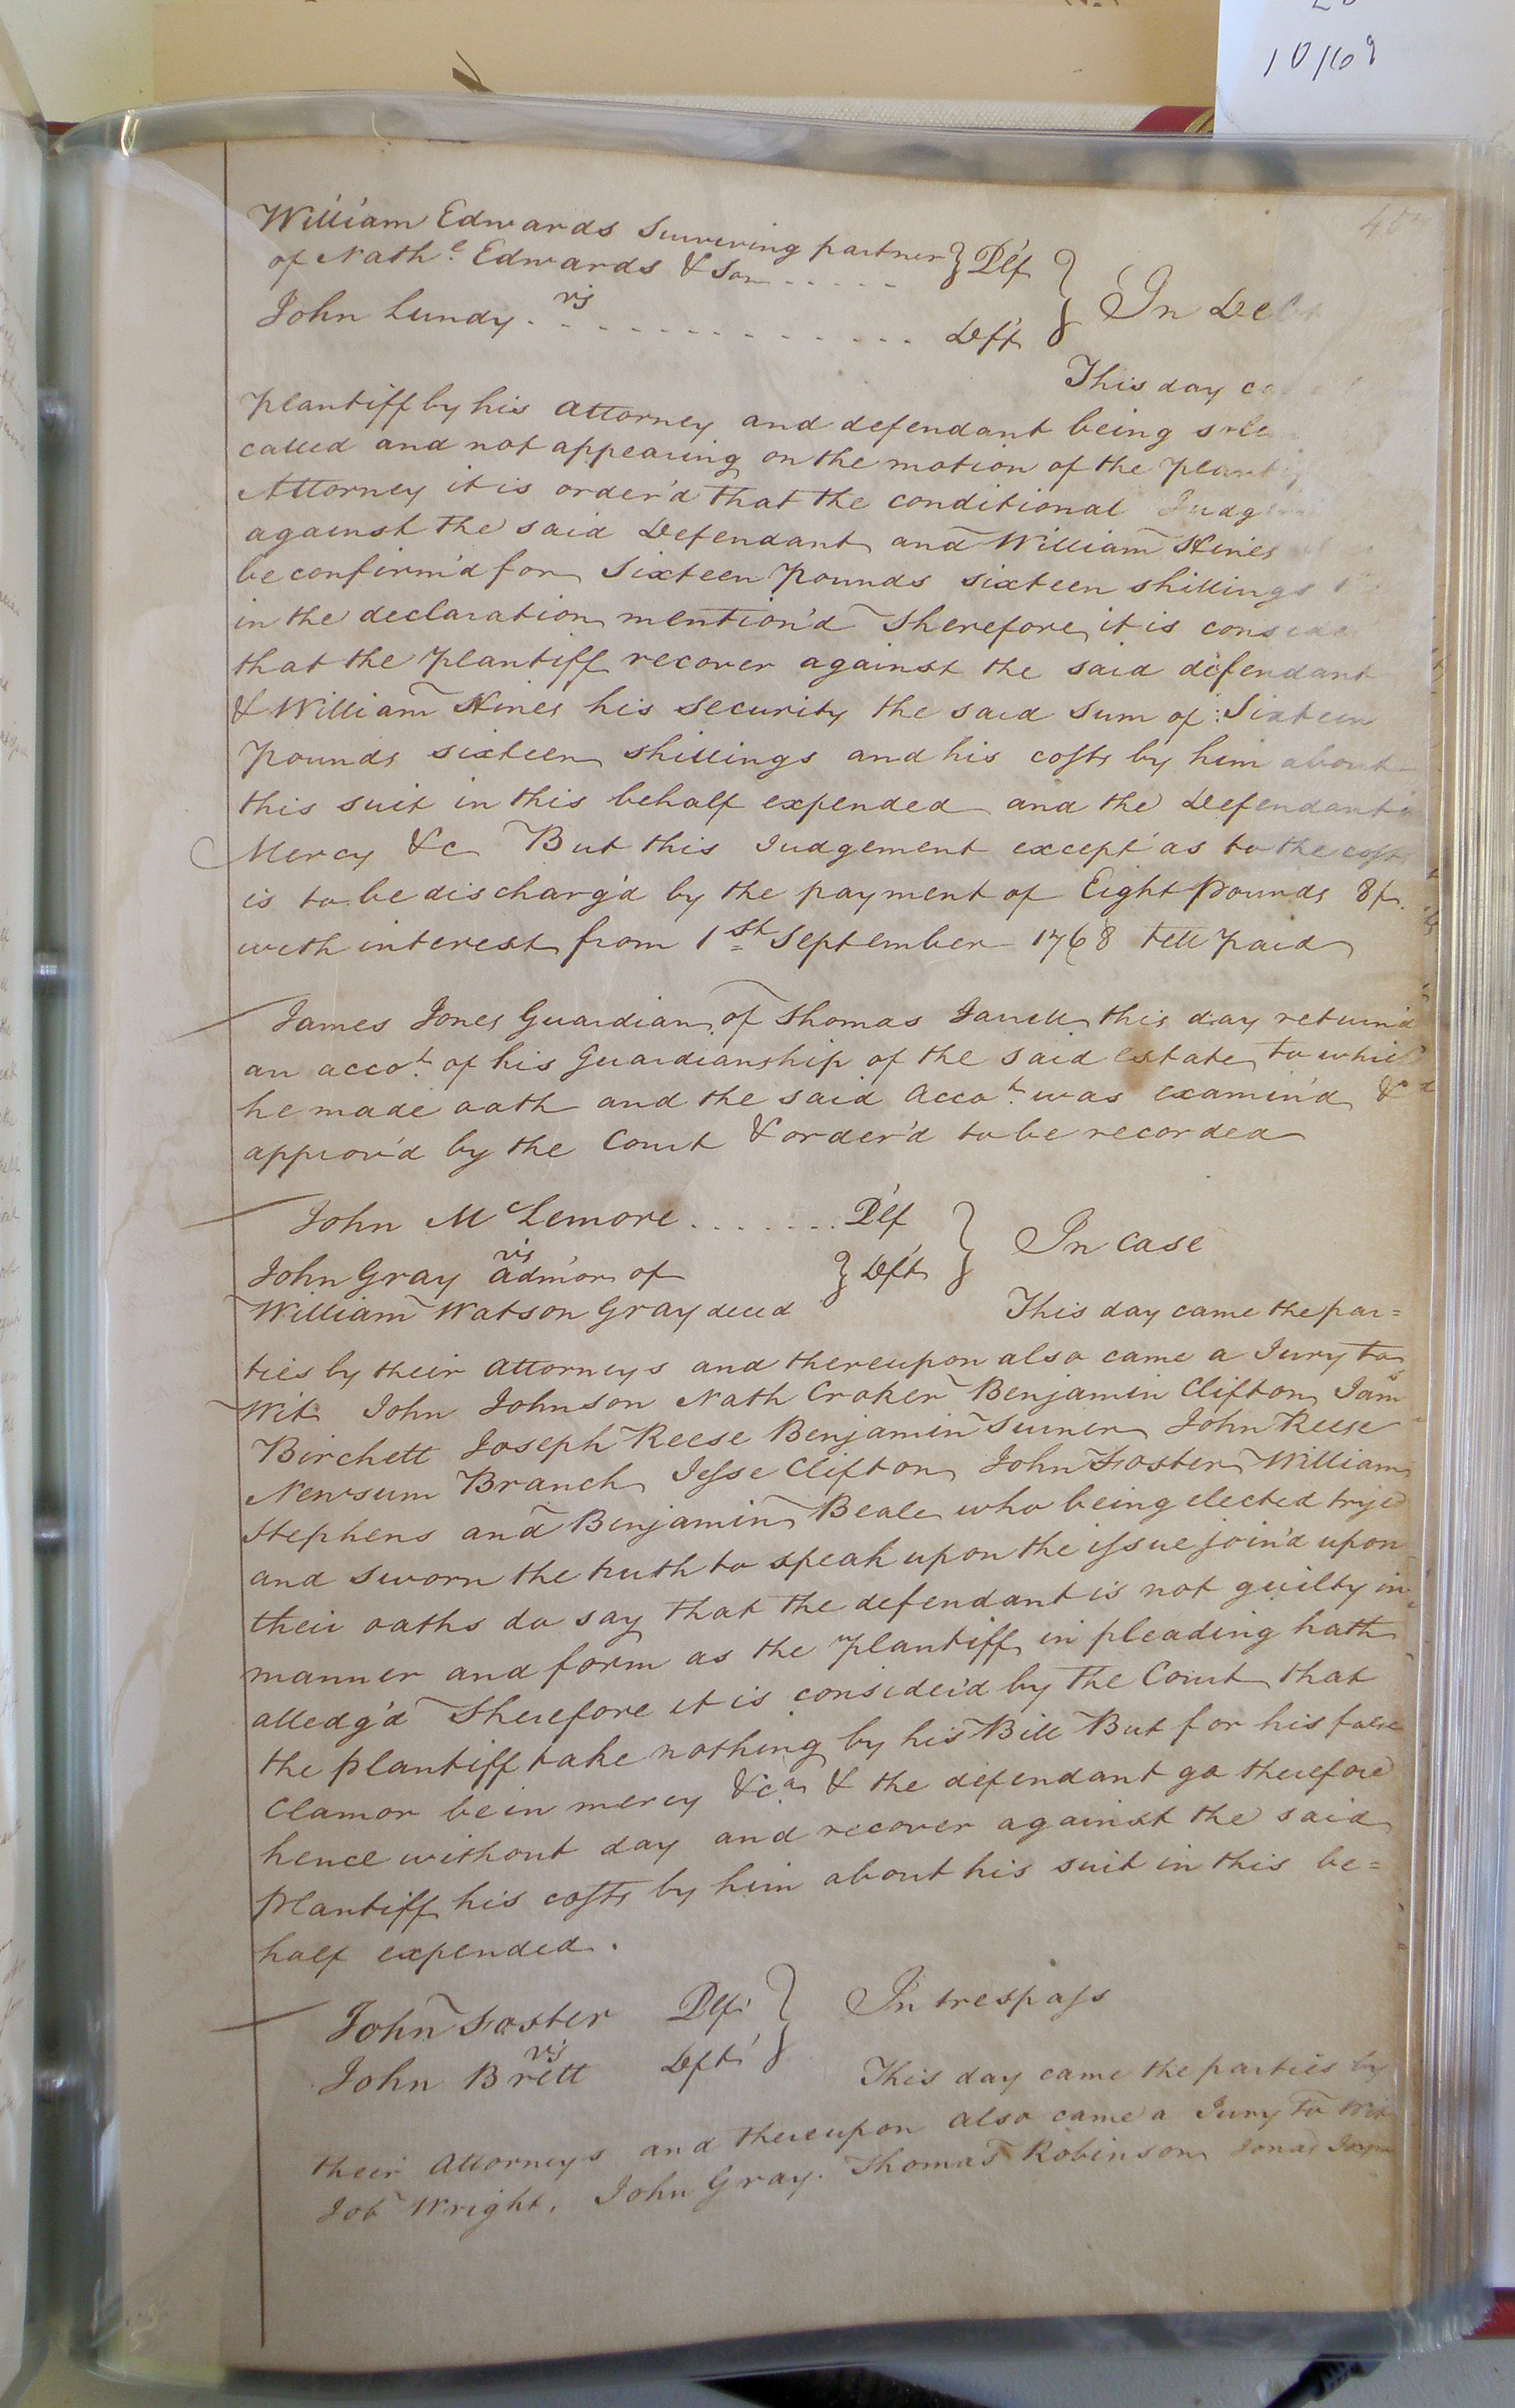 10/169
William Edwards Surviving partner } Plf
of Nathl. Edwards & Son ...... } In Debt
vs
John Lundy .............. Dft
This day
Plantiff by his attorney and defendant being
called and not appearing on the motion of the
Attorney it is order'd that the conditional Judg
against the said Defendant and William Hines
be confirm'd for Sixteen Pounds sixteen shillings
in the declaration mention'd Therefore it is conside
that the Plantiff recover against the said defendant
& William Hines his security the said sum of Sixteen
Pounds sixteen shillings and his costs by him about
this suit in this behalf expended and the Defendant
Mercy &c But this Judgement except as to the costs
is to be discharg'd by the payment of Eight Pounds 8/.
with interest from 1st September 1768 till paid
James Jones Guardian of Thomas Jarrell this day return'd
an accot. of his Guardianship of the said estate to which
he made oath and the said Accot. was examin'd &
approv'd by the Court & order'd to be recorded
John McLemore ....... Plf } In Case
vs
John Gray adm'or of } Dft
William Watson Gray decd
This day came the par=
ties by their attorneys and thereupon also came a Jury to
Wit John Johnson Nath Croker Benjamin Clifton Jams
Birchett Joseph Reese Benjamin Sumner John Reese
Newsum Branch Jesse Clifton John Foster William
Stephens and Benjamin Beale who being elected tryed
and sworn the truth to speak upon the issue join'd upon
their oaths do say that the defendant is not guilty in
manner and form as the Plantiff in pleading hath
alledg'd Therefore it is consider'd by the Court that
the plantiff take nothing by his Bill But for his false
Clamor be in mercy &ca & the defendant go therefore
hence without day and recover against the said
Plantiff his costs by him about his suit in this be=
half expended.
John Foster Plf. } In trespass
vs
John Brett Dft
This day came the parties by
their Attorneys and thereupon also came a Jury To Wit
Job Wright. John Gray. Thomas Robinson Jonas